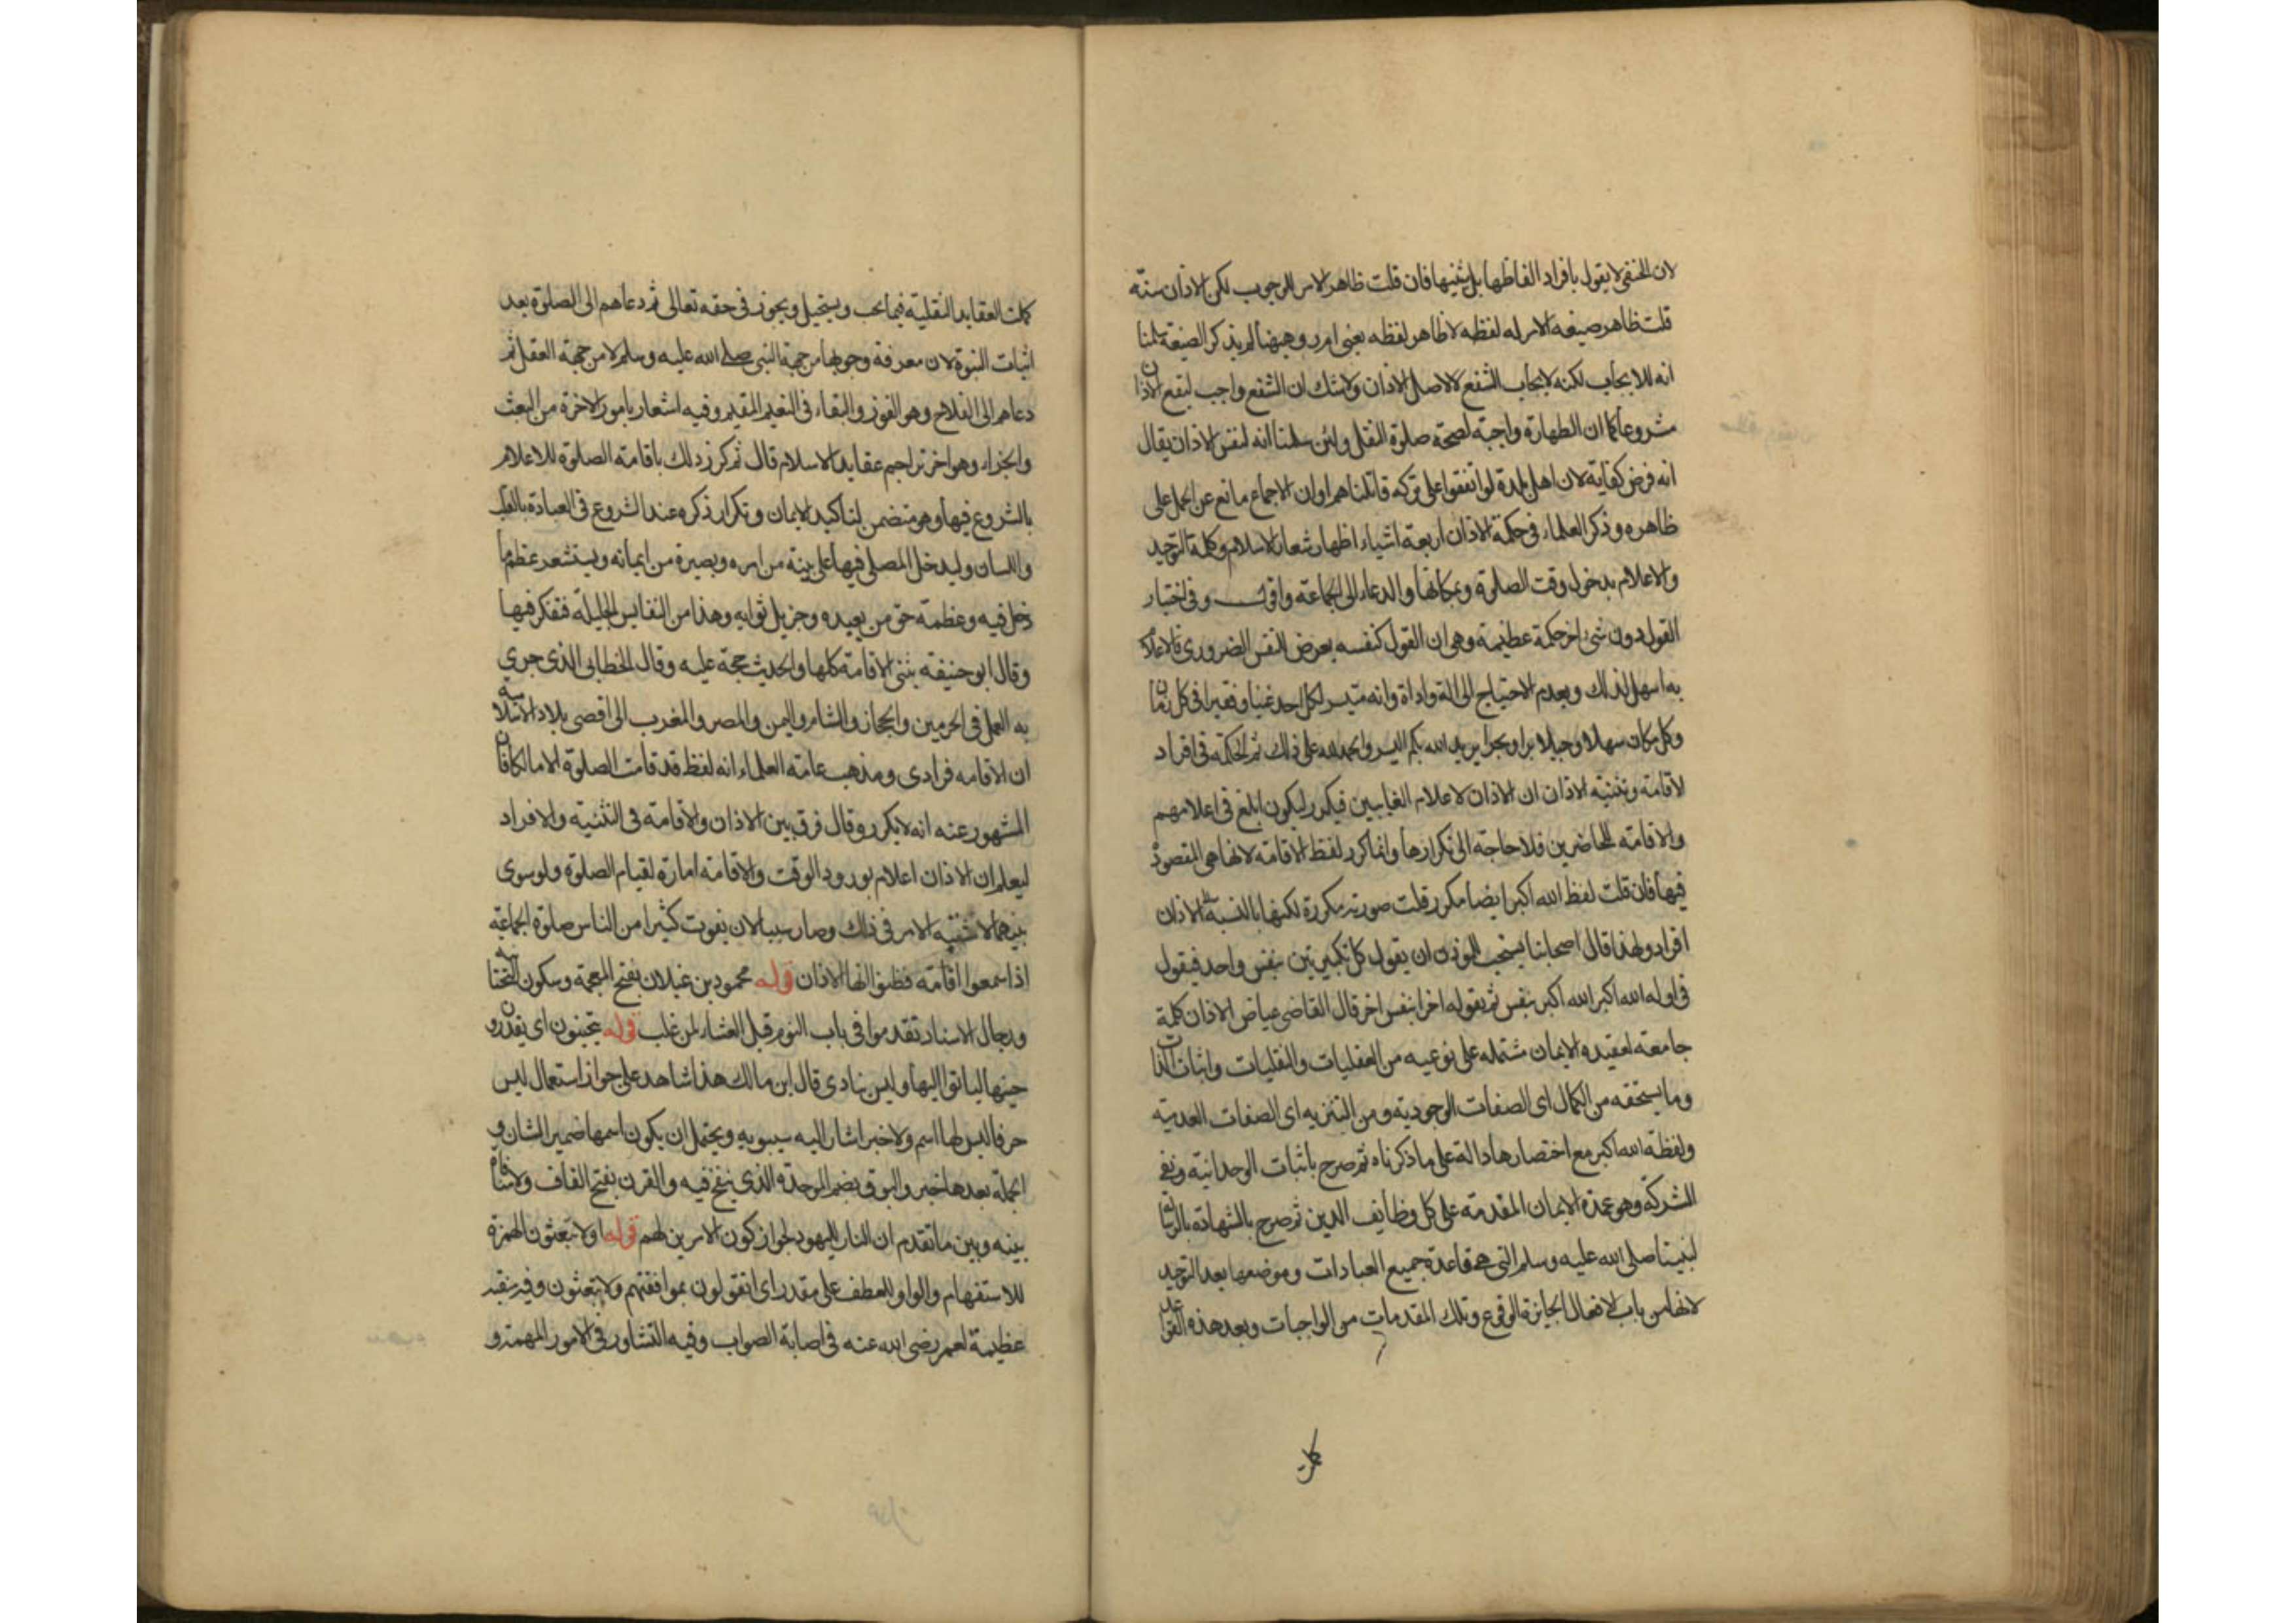 لان الحنفى لا يقول بافراد الفاظها بل يثنيها فان قلت ظاهر الامر للوجوب لكن الاذان سنة
قلت ظاهر صيغة الامر له لفظه لا ظاهر لفظه يعنى امر وههنا لم يذكر الصيغة سلمنا
انه للايجاب لكنه لايجاب الشفع لا لاصل الاذان ولا شك ان الشفع واجب ليقع الاذان
مشروعا كما ان الطهارة واجبة لصحة صلوة النفل ولئن سلمنا انه لنفس الاذان يقال
انه فرض كفاية لان اهل بلدة لو اتفقوا على تركه قاتلناهم او ان الاجماع مانع عن الحمل على
ظاهره وذكر العلماء فى حكمة الاذان اربعة اشياء اظهار شعار الاسلام وكلمة التوحيد
والاعلام بدخول وقت الصلوة وبمكانها والدعاء الى الجماعة واقول وفى اختيار
القول دون شىء اخر حكمة عظيمة وهى ان القول كنفسه يعرض النفس الضرورى فالاعلام
به اسهل لذلك ويعدم الاحتياج الى الة واداة وانه متيسر لكل احد غنيا وفقيرا فى كل زمان
وكل مكان سهلا وجبلا برا وبحرا يريد الله بكم اليسر والحمد لله على ذلك ثم الحكمة فى افراد
الاقامة وتثنية الاذان ان الاذان لاعلام الغايبين فيكرر ليكون ابلغ فى اعلامهم
والاقامة للحاضرين فلا حاجة الى تكرارها وانما كرر لفظ الاقامة لانها هى المقصود
فيها فان قلت لفظ الله اكبر ايضا مكرر قلت صورته مكررة لكنها بالنسبة الى الاذان
افراد ولهذا قال اصحابنا يستحب للمؤذن ان يقول كل تكبيرتين بنفس واحد فيقول
فى اوله الله اكبر الله اكبر بنفس ثم يقوله اخرا بنفس اخر قال القاضى عياض الاذان كلمة
جامعة لعقيدة الايمان مشتملة على نوعيه من العقليات والنقليات واثبات الذات
وما يستحقه من الكمال اى الصفات الوجودية ومن التنزيه اى الصفات العدمية
ولفظة الله اكبر مع اختصارها دالة على ما ذكرناه ثم صرح باثبات الوحدانية ونفى
الشركة وهو عمدة الايمان المقدمة على كل وظايف الدين ثم صرح بالشهادة بالرسالة
لنبينا صلى الله عليه وسلم التى هى قاعدة جميع العبادات وموضعها بعد التوحيد
لانها من باب الافعال الجايزة الوقوع وتلك المقدمات من الواجبات وبعد هذه القواعد
كملت
كملت العقايد النقلية فيما يجب ويستحيل ويجوز فى حقه تعالى ثم دعاهم الى الصلوة بعد
اثبات النبوة لان معرفة وجوبها من جهة النبى صلى الله عليه وسلم لا من جهة العقل ثم
دعاهم الى الفلاح وهو الفوز والبقاء فى النعيم المقيم وفيه اشعار بامور الاخرة من البعث
والجزاء وهو اخر تراجم عقايد الاسلام قال ثم كرر ذلك باقامة الصلوة للاعلام
بالشروع فيها وهو متضمن لتاكيد الايمان وتكرار ذكره عند الشروع فى العبادة بالقلب
واللسان وليدخل المصلى فيها على بينة من امره وبصيرة من ايمانه ويستشعر عظم ما
دخل فيه وعظمة حق من يعبده وجزيل ثوابه وهذا من النفايس الجليلة ففكر فيها
وقال ابو حنيفة يثنى الاقامة كلها والحديث حجة عليه وقال الخطابى الذى جرى
به العمل فى الحرمين والحجاز والشام واليمن والمصر والمغرب الى اقصى بلاد الاسلامية
ان الاقامة فرادى ومذهب عامة العلماء انه لفظ قد قامت الصلوة الا مالكا فان
المشهور عنه انه لا يكرر وقال فرق بين الاذان والاقامة فى التثنية والافراد
ليعلم ان الاذان اعلام بورود الوقت والاقامة امارة لقيام الصلوة ولو سوى
بينهما لاشتبه الامر فى ذلك وصار سببا لان يفوت كثيرا من الناس صلوة الجماعة
اذا سمعوا اقامة فظنوا انها الاذان قوله محمود بن غيلان بفتح المعجمة وسكون التحتانية
ورجال الاسناد تقدموا فى باب النوم قبل العشاء لمن غلب قوله يتحينون اى يقدرون
حينها لياتوا اليها وليس ينادى قال ابن مالك هذا شاهد على جواز استعمال ليس
حرفا ليس لها اسم ولا خبر اشار اليه سيبويه ويحتمل ان يكون اسمها ضمير الشان و
الجملة بعدها خبر والبوق بضم الموحدة الذى ينفخ فيه والقرن بفتح القاف ولا منافاة
بينه وبين ما تقدم ان النار لليهود لجواز كون الامرين لهم قوله اولا تبعثون الهمزة
للاستفهام والواو للعطف على مقدر اى اتقولون بموافقتهم ولا تبعثون وفيه منقبة
عظيمة لعمر رضى الله عنه فى اصابة الصواب وفيه التشاور فى الامور المهمة و